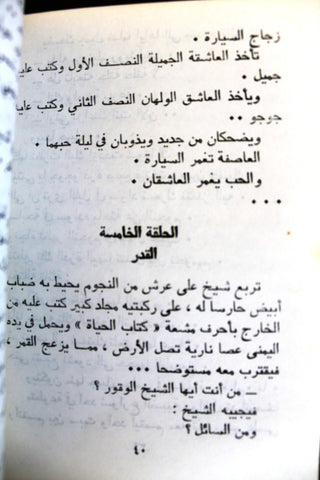 زجاج السيارة .
تأخذ العاشقة الجميلة النصف الأول وكتب عليه
جميل .
ويأخذ العاشق الولهان النصف الثاني وكتب عليه
جوجو . .
ويضحكان من جديد ويذوبان في ليلة حبهما .
العاصفة تغمر السيارة .
والحب يغمر العاشقان .
. . .
الحلقة الخامسة
القدر
تربع شيخ على عرش من النجوم يحيط به ضباب
أبيض حارسا له ، على ركبتيه مجلد كبير كتب عليه من
الخارج بأحرف مشعة « كتاب الحياة » ويحمل في يده
اليمنى عصا نارية تصل الأرض ، مما يزعج القمر ،
فيقترب معه مستوضحا . . .
— من أنت أيها الشيخ الوقور ؟
فيجيبه الشيخ :
ومن السائل ؟
٤٠